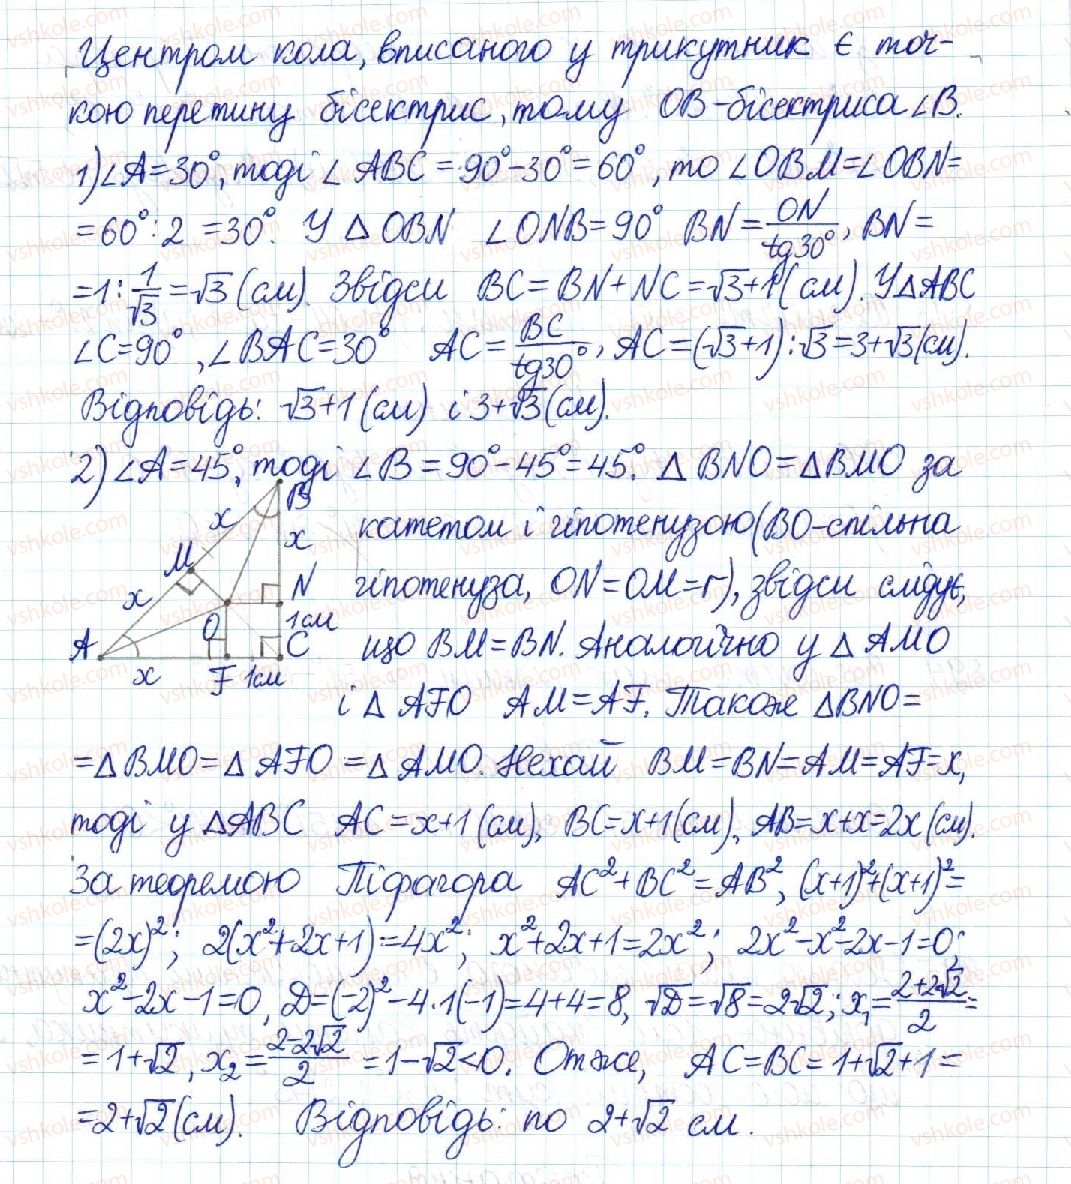 Центром кола, вписаного у трикутник є точ-
кою перетину бісектрис, тому OB-бісектриса ∠B.
1) ∠A=30°, тоді ∠ABC=90°-30°=60°, то ∠OBM=∠OBN=
=60°:2=30°. У △OBN ∠ONB=90° BN=ON/tg30°, BN=
=1:1/√3=√3(см). Звідси BC=BN+NC=√3+1(см). У △ABC
∠C=90°, ∠BAC=30° AC=BC/tg30°, AC=(√3+1):√3=3+√3(см).
Відповідь: √3+1(см) і 3+√3(см).
2) ∠A=45°, тоді ∠B=90°-45°=45°. △BNO=△BMO за
катетом і гіпотенузою(BO-спільна
гіпотенуза, ON=OM=r), звідси слідує,
що BM=BN. Аналогічно у △AMO
і △AFO AM=AF. Також △BNO=
B
x
x
M
N
x
O
1см
A
C
x
F
1см
=△BMO=△AFO=△AMO. Нехай BM=BN=AM=AF=x,
тоді у △ABC AC=x+1(см), BC=x+1(см), AB=x+x=2x(см).
За теоремою Піфагора AC²+BC²=AB², (x+1)²+(x+1)²=
=(2x)²; 2(x²+2x+1)=4x²; x²+2x+1=2x²; 2x²-x²-2x-1=0;
x²-2x-1=0, D=(-2)²-4·1(-1)=4+4=8, √D=√8=2√2; x₁=2+2√2/2=
=1+√2, x₂=2-2√2/2=1-√2<0. Отже, AC=BC=1+√2+1=
=2+√2(см). Відповідь: по 2+√2 см.
vshkole.com